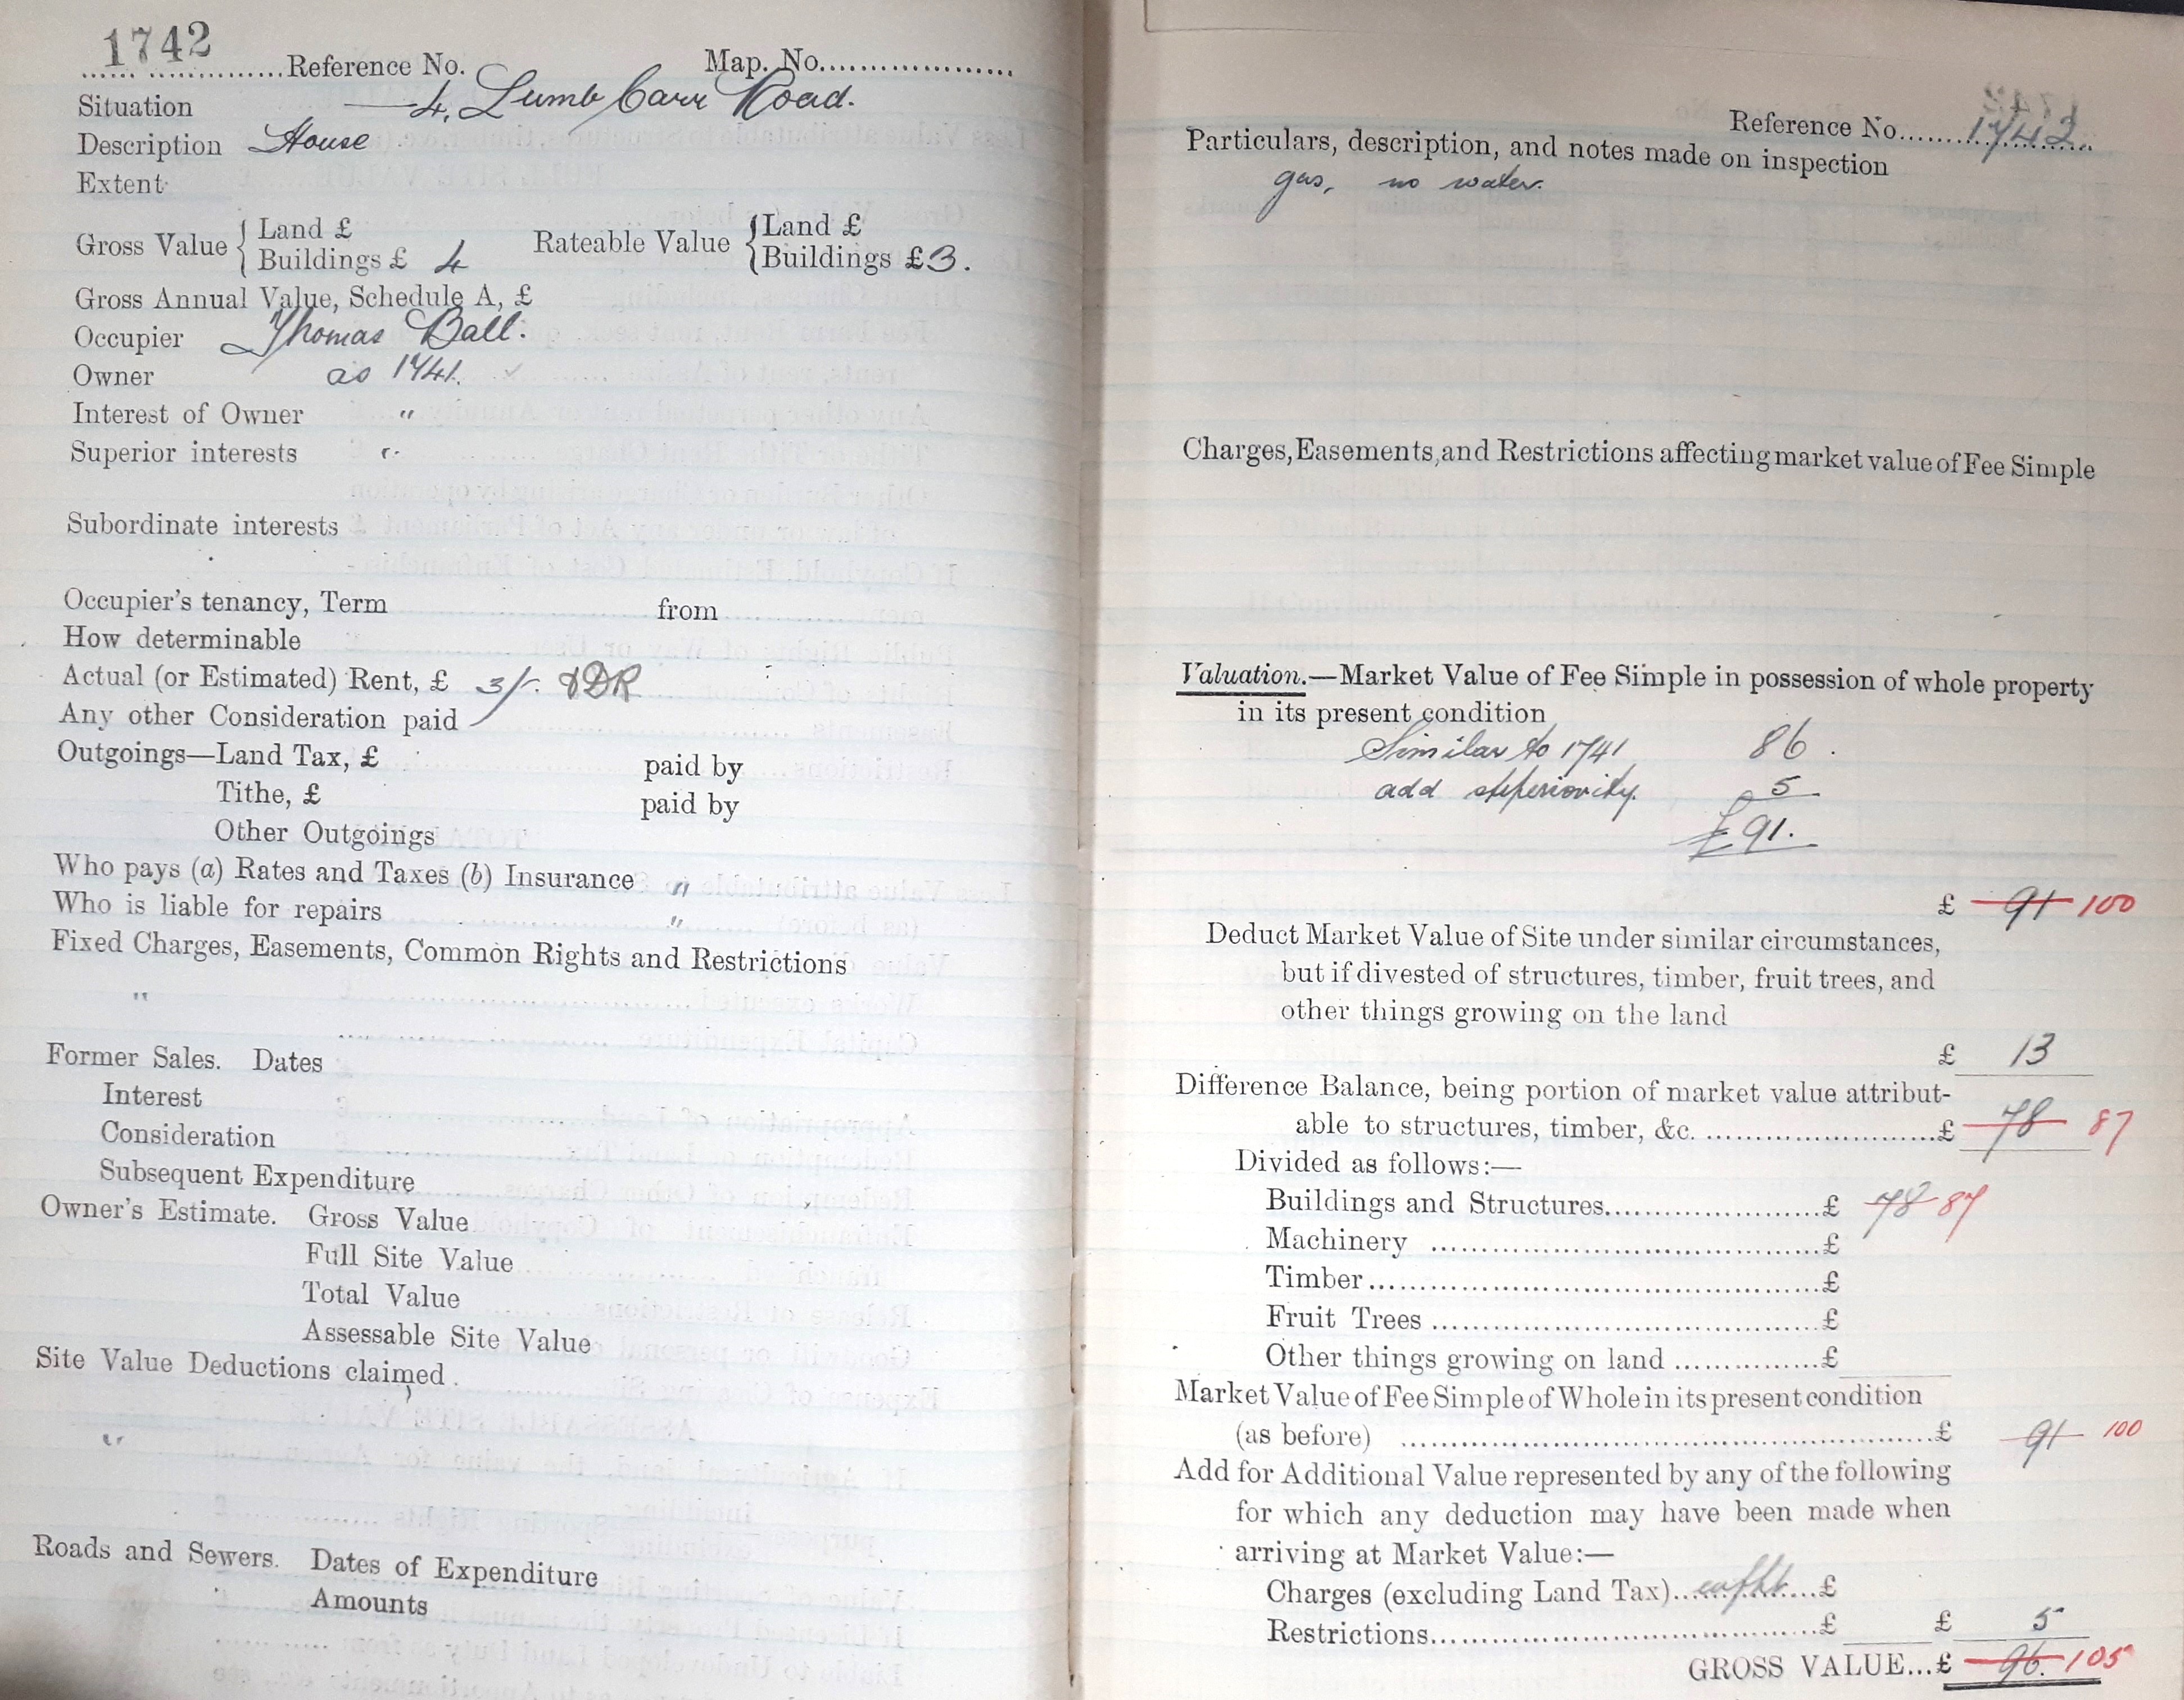 1742
Reference No. Map. No.
Situation 4, Lumb Carr Road.
Description House
Extent
Gross Value { Land £ Rateable Value { Land £
Buildings £ 4 Buildings £ 3.
Gross Annual Value, Schedule A, £
Occupier Thomas Ball.
Owner as 1741. ✓
Interest of Owner "
Superior interests "
Subordinate interests
Occupier's tenancy, Term from
How determinable
Actual (or Estimated) Rent, £ 3/-. &DR
Any other Consideration paid
Outgoings—Land Tax, £ paid by
Tithe, £ paid by
Other Outgoings
Who pays (a) Rates and Taxes (b) Insurance "
Who is liable for repairs "
Fixed Charges, Easements, Common Rights and Restrictions
"
Former Sales. Dates
Interest
Consideration
Subsequent Expenditure
Owner's Estimate. Gross Value
Full Site Value
Total Value
Assessable Site Value
Site Value Deductions claimed
"
Roads and Sewers. Dates of Expenditure
Amounts
Reference No. 1742.
Particulars, description, and notes made on inspection
gas, no water.
Charges, Easements, and Restrictions affecting market value of Fee Simple
Valuation.—Market Value of Fee Simple in possession of whole property
in its present condition
Similar to 1741 86.
add superiority. 5
£91.
£ 91 100
Deduct Market Value of Site under similar circumstances,
but if divested of structures, timber, fruit trees, and
other things growing on the land
£ 13
Difference Balance, being portion of market value attribut-
able to structures, timber, &c. £ 78 87
Divided as follows:—
Buildings and Structures £ 78 87
Machinery £
Timber £
Fruit Trees £
Other things growing on land £
Market Value of Fee Simple of Whole in its present condition
(as before) £ 91 100
Add for Additional Value represented by any of the following
for which any deduction may have been made when
arriving at Market Value:—
Charges (excluding Land Tax) £
Restrictions £ £ 5
GROSS VALUE...£ 96. 105